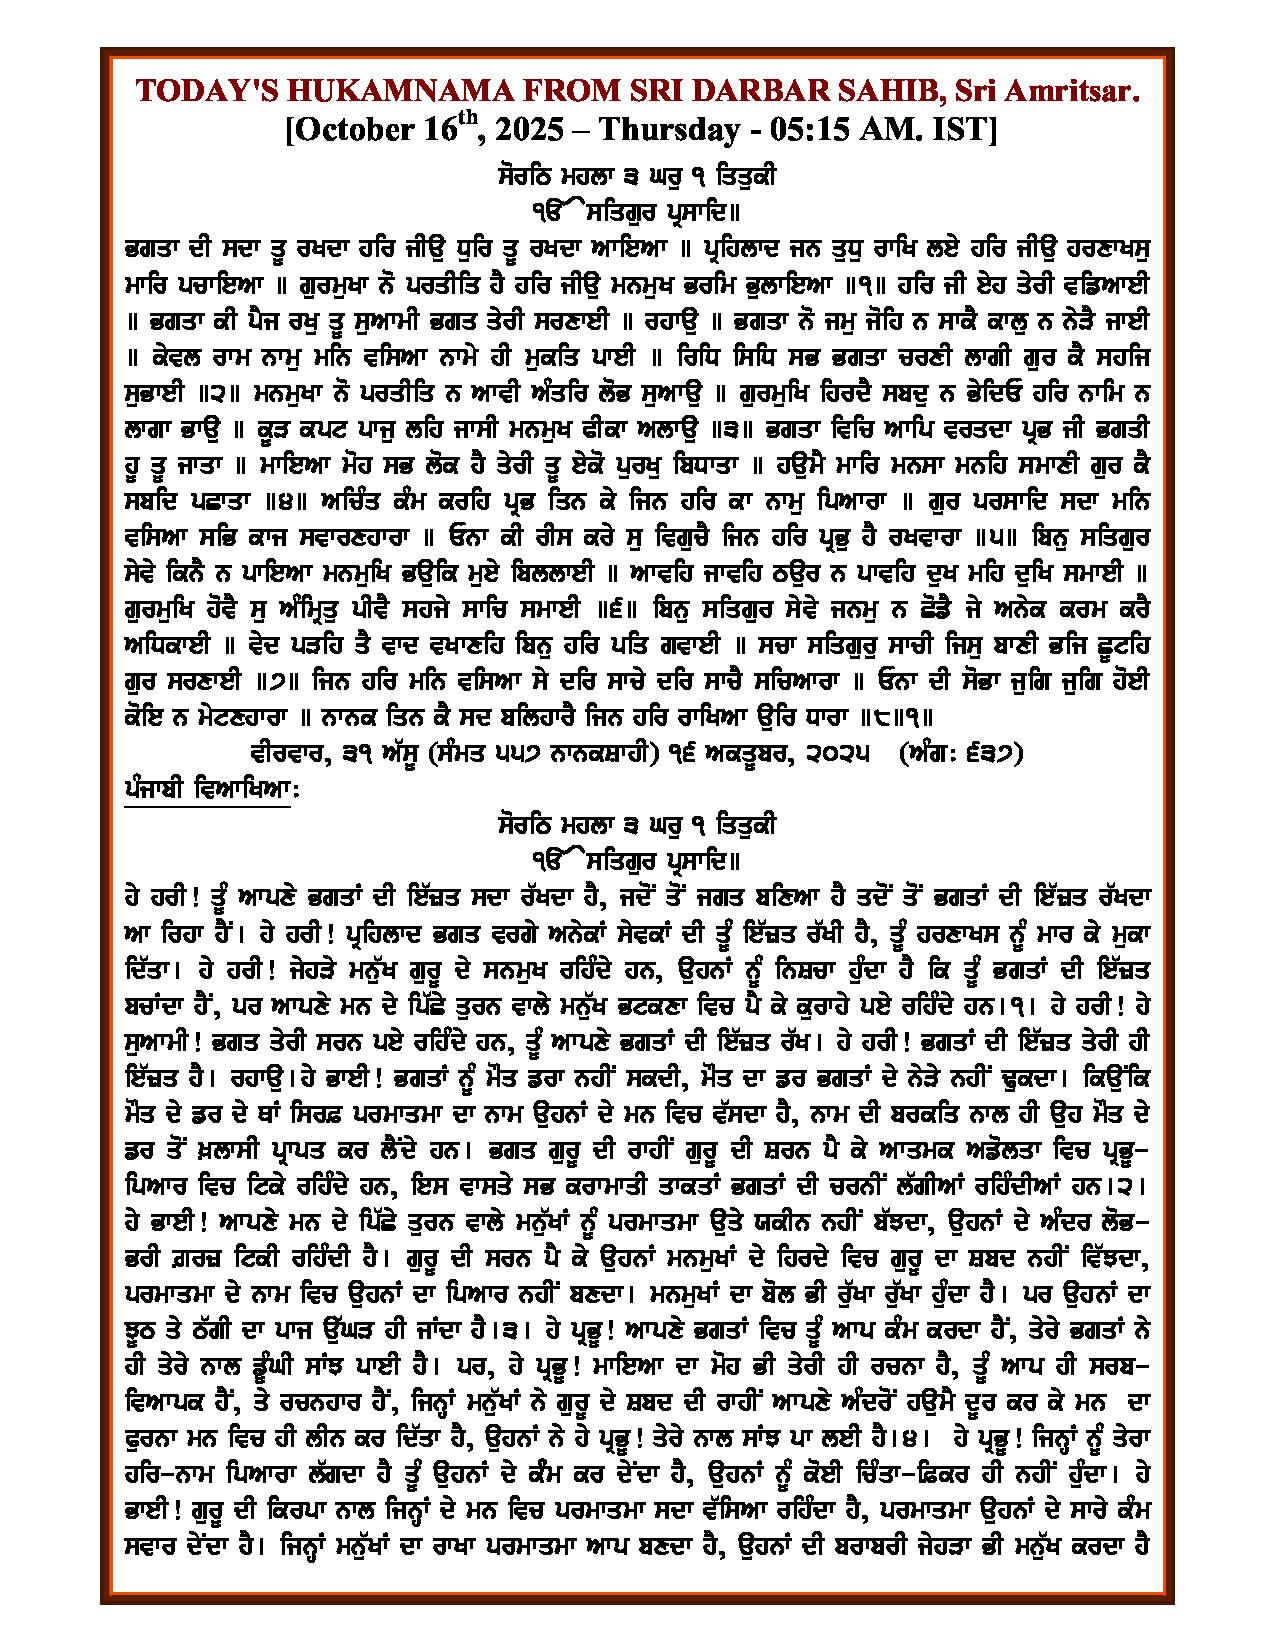 TODAY'S HUKAMNAMA FROM SRI DARBAR SAHIB, Sri Amritsar.
[October 16th, 2025 – Thursday - 05:15 AM. IST]
ਸੋਰਠਿ ਮਹਲਾ ੩ ਘਰੁ ੧ ਤਿਤੁਕੀ
ੴ ਸਤਿਗੁਰ ਪ੍ਰਸਾਦਿ॥
ਭਗਤਾ ਦੀ ਸਦਾ ਤੂ ਰਖਦਾ ਹਰਿ ਜੀਉ ਧੁਰਿ ਤੂ ਰਖਦਾ ਆਇਆ ॥ ਪ੍ਰਹਿਲਾਦ ਜਨ ਤੁਧੁ ਰਾਖਿ ਲਏ ਹਰਿ ਜੀਉ ਹਰਣਾਖਸੁ
ਮਾਰਿ ਪਚਾਇਆ ॥ ਗੁਰਮੁਖਾ ਨੋ ਪਰਤੀਤਿ ਹੈ ਹਰਿ ਜੀਉ ਮਨਮੁਖ ਭਰਮਿ ਭੁਲਾਇਆ ॥੧॥ ਹਰਿ ਜੀ ਏਹ ਤੇਰੀ ਵਡਿਆਈ
॥ ਭਗਤਾ ਕੀ ਪੈਜ ਰਖੁ ਤੂ ਸੁਆਮੀ ਭਗਤ ਤੇਰੀ ਸਰਣਾਈ ॥ ਰਹਾਉ ॥ ਭਗਤਾ ਨੋ ਜਮੁ ਜੋਹਿ ਨ ਸਾਕੈ ਕਾਲੁ ਨ ਨੇੜੈ ਜਾਈ
॥ ਕੇਵਲ ਰਾਮ ਨਾਮੁ ਮਨਿ ਵਸਿਆ ਨਾਮੇ ਹੀ ਮੁਕਤਿ ਪਾਈ ॥ ਰਿਧਿ ਸਿਧਿ ਸਭ ਭਗਤਾ ਚਰਣੀ ਲਾਗੀ ਗੁਰ ਕੈ ਸਹਜਿ
ਸੁਭਾਈ ॥੨॥ ਮਨਮੁਖਾ ਨੋ ਪਰਤੀਤਿ ਨ ਆਵੀ ਅੰਤਰਿ ਲੋਭ ਸੁਆਉ ॥ ਗੁਰਮੁਖਿ ਹਿਰਦੈ ਸਬਦੁ ਨ ਭੇਦਿਓ ਹਰਿ ਨਾਮਿ ਨ
ਲਾਗਾ ਭਾਉ ॥ ਕੂੜ ਕਪਟ ਪਾਜੁ ਲਹਿ ਜਾਸੀ ਮਨਮੁਖ ਫੀਕਾ ਅਲਾਉ ॥੩॥ ਭਗਤਾ ਵਿਚਿ ਆਪਿ ਵਰਤਦਾ ਪ੍ਰਭ ਜੀ ਭਗਤੀ
ਹੂ ਤੂ ਜਾਤਾ ॥ ਮਾਇਆ ਮੋਹ ਸਭ ਲੋਕ ਹੈ ਤੇਰੀ ਤੂ ਏਕੋ ਪੁਰਖੁ ਬਿਧਾਤਾ ॥ ਹਉਮੈ ਮਾਰਿ ਮਨਸਾ ਮਨਹਿ ਸਮਾਣੀ ਗੁਰ ਕੈ
ਸਬਦਿ ਪਛਾਤਾ ॥੪॥ ਅਚਿੰਤ ਕੰਮ ਕਰਹਿ ਪ੍ਰਭ ਤਿਨ ਕੇ ਜਿਨ ਹਰਿ ਕਾ ਨਾਮੁ ਪਿਆਰਾ ॥ ਗੁਰ ਪਰਸਾਦਿ ਸਦਾ ਮਨਿ
ਵਸਿਆ ਸਭਿ ਕਾਜ ਸਵਾਰਣਹਾਰਾ ॥ ਓਨਾ ਕੀ ਰੀਸ ਕਰੇ ਸੁ ਵਿਗੁਚੈ ਜਿਨ ਹਰਿ ਪ੍ਰਭੁ ਹੈ ਰਖਵਾਰਾ ॥੫॥ ਬਿਨੁ ਸਤਿਗੁਰ
ਸੇਵੇ ਕਿਨੈ ਨ ਪਾਇਆ ਮਨਮੁਖਿ ਭਉਕਿ ਮੁਏ ਬਿਲਲਾਈ ॥ ਆਵਹਿ ਜਾਵਹਿ ਠਉਰ ਨ ਪਾਵਹਿ ਦੁਖ ਮਹਿ ਦੁਖਿ ਸਮਾਈ ॥
ਗੁਰਮੁਖਿ ਹੋਵੈ ਸੁ ਅੰਮ੍ਰਿਤੁ ਪੀਵੈ ਸਹਜੇ ਸਾਚਿ ਸਮਾਈ ॥੬॥ ਬਿਨੁ ਸਤਿਗੁਰ ਸੇਵੇ ਜਨਮੁ ਨ ਛੋਡੈ ਜੇ ਅਨੇਕ ਕਰਮ ਕਰੈ
ਅਧਿਕਾਈ ॥ ਵੇਦ ਪੜਹਿ ਤੈ ਵਾਦ ਵਖਾਣਹਿ ਬਿਨੁ ਹਰਿ ਪਤਿ ਗਵਾਈ ॥ ਸਚਾ ਸਤਿਗੁਰੁ ਸਾਚੀ ਜਿਸੁ ਬਾਣੀ ਭਜਿ ਛੂਟਹਿ
ਗੁਰ ਸਰਣਾਈ ॥੭॥ ਜਿਨ ਹਰਿ ਮਨਿ ਵਸਿਆ ਸੇ ਦਰਿ ਸਾਚੇ ਦਰਿ ਸਾਚੈ ਸਚਿਆਰਾ ॥ ਓਨਾ ਦੀ ਸੋਭਾ ਜੁਗਿ ਜੁਗਿ ਹੋਈ
ਕੋਇ ਨ ਮੇਟਣਹਾਰਾ ॥ ਨਾਨਕ ਤਿਨ ਕੈ ਸਦ ਬਲਿਹਾਰੈ ਜਿਨ ਹਰਿ ਰਾਖਿਆ ਉਰਿ ਧਾਰਾ ॥੮॥੧॥
ਵੀਰਵਾਰ, ੩੧ ਅੱਸੂ (ਸੰਮਤ ੫੫੭ ਨਾਨਕਸ਼ਾਹੀ) ੧੬ ਅਕਤੂਬਰ, ੨੦੨੫ (ਅੰਗ: ੬੩੭)
ਪੰਜਾਬੀ ਵਿਆਖਿਆ:
ਸੋਰਠਿ ਮਹਲਾ ੩ ਘਰੁ ੧ ਤਿਤੁਕੀ
ੴ ਸਤਿਗੁਰ ਪ੍ਰਸਾਦਿ॥
ਹੇ ਹਰੀ! ਤੂੰ ਆਪਣੇ ਭਗਤਾਂ ਦੀ ਇੱਜ਼ਤ ਸਦਾ ਰੱਖਦਾ ਹੈ, ਜਦੋਂ ਤੋਂ ਜਗਤ ਬਣਿਆ ਹੈ ਤਦੋਂ ਤੋਂ ਭਗਤਾਂ ਦੀ ਇੱਜ਼ਤ ਰੱਖਦਾ
ਆ ਰਿਹਾ ਹੈਂ। ਹੇ ਹਰੀ! ਪ੍ਰਹਿਲਾਦ ਭਗਤ ਵਰਗੇ ਅਨੇਕਾਂ ਸੇਵਕਾਂ ਦੀ ਤੂੰ ਇੱਜ਼ਤ ਰੱਖੀ ਹੈ, ਤੂੰ ਹਰਣਾਖਸ ਨੂੰ ਮਾਰ ਕੇ ਮੁਕਾ
ਦਿੱਤਾ। ਹੇ ਹਰੀ! ਜੇਹੜੇ ਮਨੁੱਖ ਗੁਰੂ ਦੇ ਸਨਮੁਖ ਰਹਿੰਦੇ ਹਨ, ਉਹਨਾਂ ਨੂੰ ਨਿਸ਼ਚਾ ਹੁੰਦਾ ਹੈ ਕਿ ਤੂੰ ਭਗਤਾਂ ਦੀ ਇੱਜ਼ਤ
ਬਚਾਂਦਾ ਹੈਂ, ਪਰ ਆਪਣੇ ਮਨ ਦੇ ਪਿੱਛੇ ਤੁਰਨ ਵਾਲੇ ਮਨੁੱਖ ਭਟਕਣਾ ਵਿਚ ਪੈ ਕੇ ਕੁਰਾਹੇ ਪਏ ਰਹਿੰਦੇ ਹਨ।੧। ਹੇ ਹਰੀ! ਹੇ
ਸੁਆਮੀ! ਭਗਤ ਤੇਰੀ ਸਰਨ ਪਏ ਰਹਿੰਦੇ ਹਨ, ਤੂੰ ਆਪਣੇ ਭਗਤਾਂ ਦੀ ਇੱਜ਼ਤ ਰੱਖ। ਹੇ ਹਰੀ! ਭਗਤਾਂ ਦੀ ਇੱਜ਼ਤ ਤੇਰੀ ਹੀ
ਇੱਜ਼ਤ ਹੈ। ਰਹਾਉ।ਹੇ ਭਾਈ! ਭਗਤਾਂ ਨੂੰ ਮੌਤ ਡਰਾ ਨਹੀਂ ਸਕਦੀ, ਮੌਤ ਦਾ ਡਰ ਭਗਤਾਂ ਦੇ ਨੇੜੇ ਨਹੀਂ ਢੁਕਦਾ। ਕਿਉਂਕਿ
ਮੌਤ ਦੇ ਡਰ ਦੇ ਥਾਂ ਸਿਰਫ਼ ਪਰਮਾਤਮਾ ਦਾ ਨਾਮ ਉਹਨਾਂ ਦੇ ਮਨ ਵਿਚ ਵੱਸਦਾ ਹੈ, ਨਾਮ ਦੀ ਬਰਕਤਿ ਨਾਲ ਹੀ ਉਹ ਮੌਤ ਦੇ
ਡਰ ਤੋਂ ਖ਼ਲਾਸੀ ਪ੍ਰਾਪਤ ਕਰ ਲੈਂਦੇ ਹਨ। ਭਗਤ ਗੁਰੂ ਦੀ ਰਾਹੀਂ ਗੁਰੂ ਦੀ ਸ਼ਰਨ ਪੈ ਕੇ ਆਤਮਕ ਅਡੋਲਤਾ ਵਿਚ ਪ੍ਰਭੂ-
ਪਿਆਰ ਵਿਚ ਟਿਕੇ ਰਹਿੰਦੇ ਹਨ, ਇਸ ਵਾਸਤੇ ਸਭ ਕਰਾਮਾਤੀ ਤਾਕਤਾਂ ਭਗਤਾਂ ਦੀ ਚਰਨੀਂ ਲੱਗੀਆਂ ਰਹਿੰਦੀਆਂ ਹਨ।੨।
ਹੇ ਭਾਈ! ਆਪਣੇ ਮਨ ਦੇ ਪਿੱਛੇ ਤੁਰਨ ਵਾਲੇ ਮਨੁੱਖਾਂ ਨੂੰ ਪਰਮਾਤਮਾ ਉਤੇ ਯਕੀਨ ਨਹੀਂ ਬੱਝਦਾ, ਉਹਨਾਂ ਦੇ ਅੰਦਰ ਲੋਭ-
ਭਰੀ ਗ਼ਰਜ਼ ਟਿਕੀ ਰਹਿੰਦੀ ਹੈ। ਗੁਰੂ ਦੀ ਸਰਨ ਪੈ ਕੇ ਉਹਨਾਂ ਮਨਮੁਖਾਂ ਦੇ ਹਿਰਦੇ ਵਿਚ ਗੁਰੂ ਦਾ ਸ਼ਬਦ ਨਹੀਂ ਵਿੱਝਦਾ,
ਪਰਮਾਤਮਾ ਦੇ ਨਾਮ ਵਿਚ ਉਹਨਾਂ ਦਾ ਪਿਆਰ ਨਹੀਂ ਬਣਦਾ। ਮਨਮੁਖਾਂ ਦਾ ਬੋਲ ਭੀ ਰੁੱਖਾ ਰੁੱਖਾ ਹੁੰਦਾ ਹੈ। ਪਰ ਉਹਨਾਂ ਦਾ
ਝੂਠ ਤੇ ਠੱਗੀ ਦਾ ਪਾਜ ਉੱਘੜ ਹੀ ਜਾਂਦਾ ਹੈ।੩। ਹੇ ਪ੍ਰਭੂ! ਆਪਣੇ ਭਗਤਾਂ ਵਿਚ ਤੂੰ ਆਪ ਕੰਮ ਕਰਦਾ ਹੈਂ, ਤੇਰੇ ਭਗਤਾਂ ਨੇ
ਹੀ ਤੇਰੇ ਨਾਲ ਡੂੰਘੀ ਸਾਂਝ ਪਾਈ ਹੈ। ਪਰ, ਹੇ ਪ੍ਰਭੂ! ਮਾਇਆ ਦਾ ਮੋਹ ਭੀ ਤੇਰੀ ਹੀ ਰਚਨਾ ਹੈ, ਤੂੰ ਆਪ ਹੀ ਸਰਬ-
ਵਿਆਪਕ ਹੈਂ, ਤੇ ਰਚਨਹਾਰ ਹੈਂ, ਜਿਨ੍ਹਾਂ ਮਨੁੱਖਾਂ ਨੇ ਗੁਰੂ ਦੇ ਸ਼ਬਦ ਦੀ ਰਾਹੀਂ ਆਪਣੇ ਅੰਦਰੋਂ ਹਉਮੈ ਦੂਰ ਕਰ ਕੇ ਮਨ ਦਾ
ਫੁਰਨਾ ਮਨ ਵਿਚ ਹੀ ਲੀਨ ਕਰ ਦਿੱਤਾ ਹੈ, ਉਹਨਾਂ ਨੇ ਹੇ ਪ੍ਰਭੂ! ਤੇਰੇ ਨਾਲ ਸਾਂਝ ਪਾ ਲਈ ਹੈ।੪। ਹੇ ਪ੍ਰਭੂ! ਜਿਨ੍ਹਾਂ ਨੂੰ ਤੇਰਾ
ਹਰਿ-ਨਾਮ ਪਿਆਰਾ ਲੱਗਦਾ ਹੈ ਤੂੰ ਉਹਨਾਂ ਦੇ ਕੰਮ ਕਰ ਦੇਂਦਾ ਹੈ, ਉਹਨਾਂ ਨੂੰ ਕੋਈ ਚਿੰਤਾ-ਫ਼ਿਕਰ ਹੀ ਨਹੀਂ ਹੁੰਦਾ। ਹੇ
ਭਾਈ! ਗੁਰੂ ਦੀ ਕਿਰਪਾ ਨਾਲ ਜਿਨ੍ਹਾਂ ਦੇ ਮਨ ਵਿਚ ਪਰਮਾਤਮਾ ਸਦਾ ਵੱਸਿਆ ਰਹਿੰਦਾ ਹੈ, ਪਰਮਾਤਮਾ ਉਹਨਾਂ ਦੇ ਸਾਰੇ ਕੰਮ
ਸਵਾਰ ਦੇਂਦਾ ਹੈ। ਜਿਨ੍ਹਾਂ ਮਨੁੱਖਾਂ ਦਾ ਰਾਖਾ ਪਰਮਾਤਮਾ ਆਪ ਬਣਦਾ ਹੈ, ਉਹਨਾਂ ਦੀ ਬਰਾਬਰੀ ਜੇਹੜਾ ਭੀ ਮਨੁੱਖ ਕਰਦਾ ਹੈ